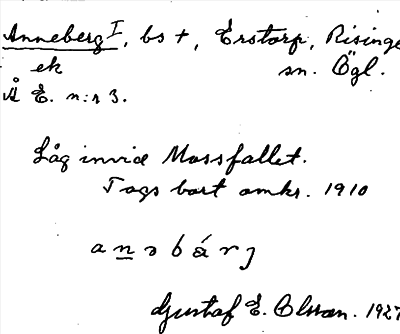 Anneberg I, bs +, Erstorp, Risinge
ek sn. Ögl.
Å E. n:r 3.
Låg invid Mossfallet.
Togs bort omkr. 1910
a n ə b á r j
Gustaf E. Olsson. 1927